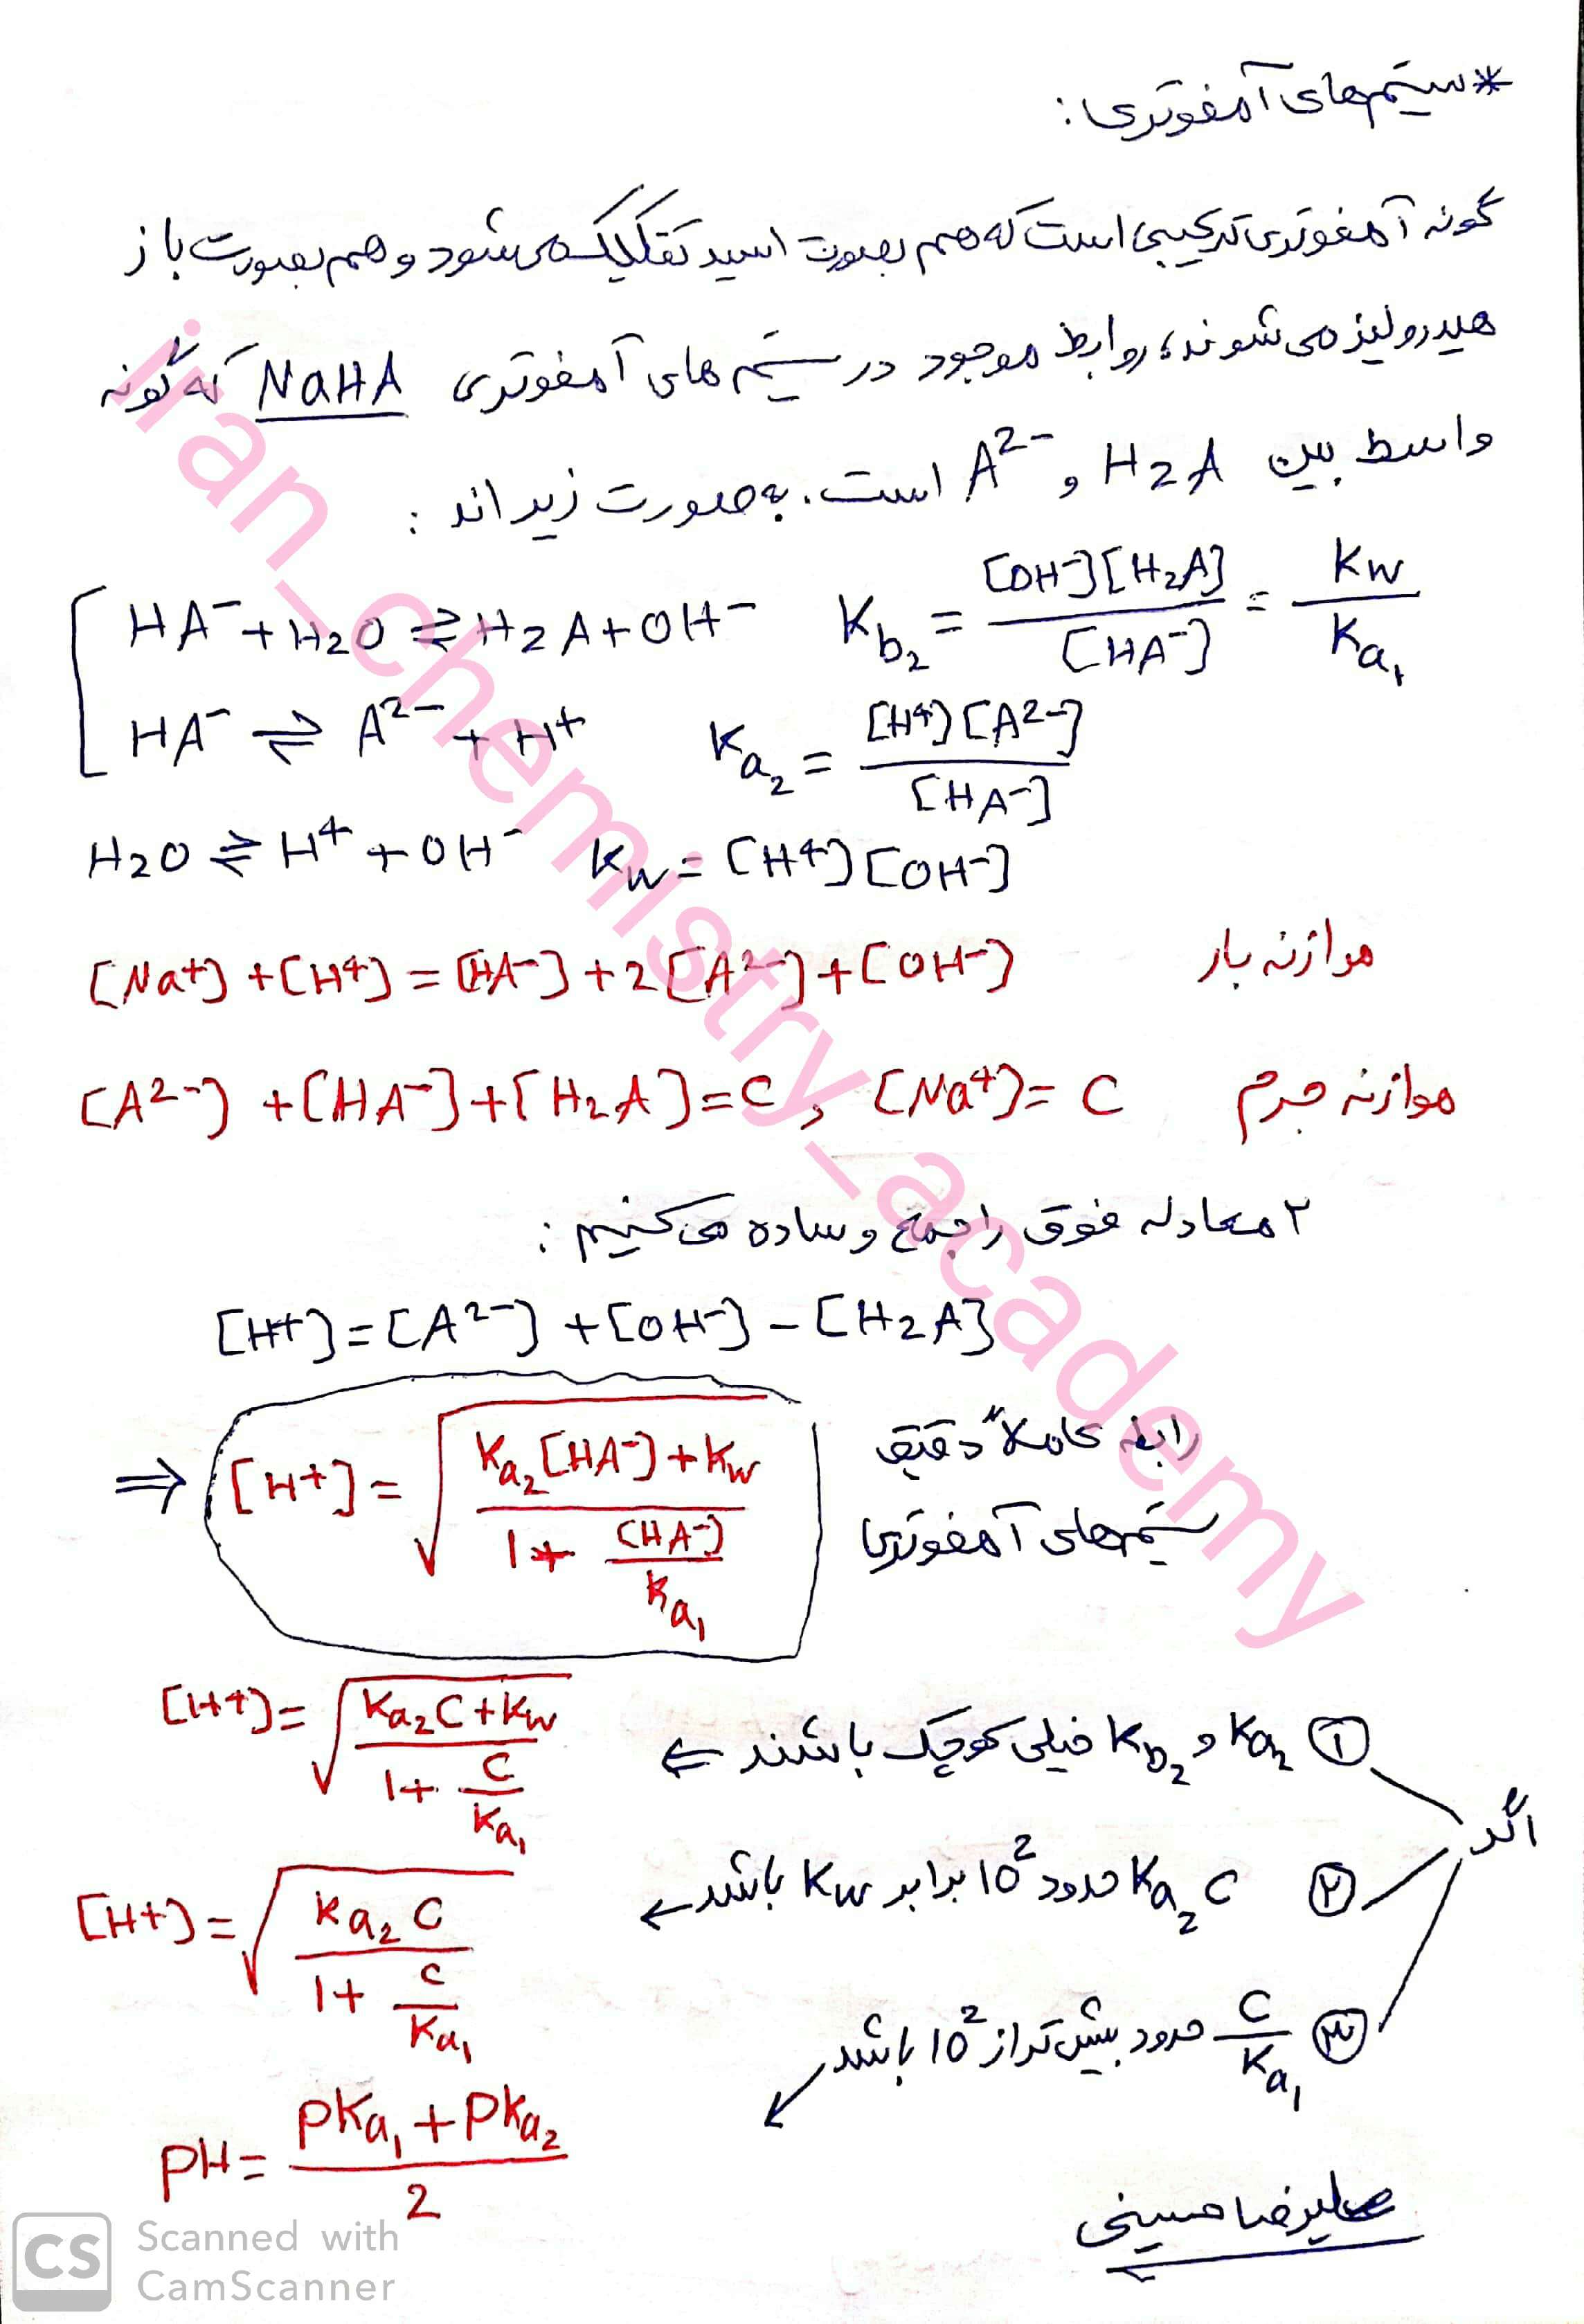 *سیستم‌های آمفوتری:
گونه آمفوتری ترکیبی است که هم بصورت اسید تفکیک می‌شود و هم بصورت باز
هیدرولیز می‌شوند؛ روابط موجود در سیستم های آمفوتری NaHA که گونه
واسط بین H2A و A²⁻ است. به صورت زیر اند :
HA⁻ + H2O ⇌ H2A + OH⁻ Kb₂ = [OH⁻][H₂A] / [HA⁻] = Kw / Ka₁
HA⁻ ⇌ A²⁻ + H⁺ Ka₂ = [H⁺][A²⁻] / [HA⁻]
H2O ⇌ H⁺ + OH⁻ Kw = [H⁺][OH⁻]
[Na⁺] + [H⁺] = [HA⁻] + 2[A²⁻] + [OH⁻] موازنه بار
[A²⁻] + [HA⁻] + [H₂A] = C , [Na⁺] = C موازنه جرم
۲ معادله فوق را جمع و ساده می کنیم :
[H⁺] = [A²⁻] + [OH⁻] − [H₂A]
⇒ [H⁺] = √((Ka₂[HA⁻] + Kw) / (1 + [HA⁻]/Ka₁)) رابطه کاملاً دقیق
سیستم‌های آمفوتری
اگر
① Ka₂ و Kb₂ خیلی کوچک باشند ⇐ [H⁺] = √((Ka₂C + Kw) / (1 + C/Ka₁))
② Ka₂C حدود 10² برابر Kw باشد ← [H⁺] = √(Ka₂C / (1 + C/Ka₁))
③ C/Ka₁ حدود بیش تر از 10² باشد ↙
pH = (pKa₁ + pKa₂) / 2
علیرضا حسینی
CS Scanned with
CamScanner
iran_chemistry_academy